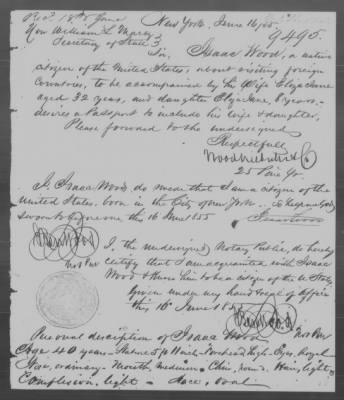 Rec'd 18th June
New York, June 16/55.
9495.
Hon William L. Marcy
Secretary of State
Sir, Isaac Wood, a native
citizen of the United States, about visiting foreign
Countries, to be accompanied by his Wife Eliza Jane
aged 32 years, and daughter Eliza Jane 8 years.
desires a Passport to include his wife & daughter,
Please forward to the undersigned
Respectfully
25
I, Isaac Wood do swear that I am a citizen of the
United States. born in the City of New York.
sworn to before me this 16 June 1855 Isaac Wood
Not Pub
I, the undersigned Notary Public, do hereby
certify that I am acquainted with Isaac
Wood & know him to be a citizen of the U States
given under my hand & seal of office
this 16 June 1855
Not Pub
Personal description of Isaac Wood
Age 40 years - Stature 5/10 Inch - Forehead high - Eyes,
Nose, ordinary - Mouth, medium - Chin, round. Hair, light
Complexion, light - Face, oval